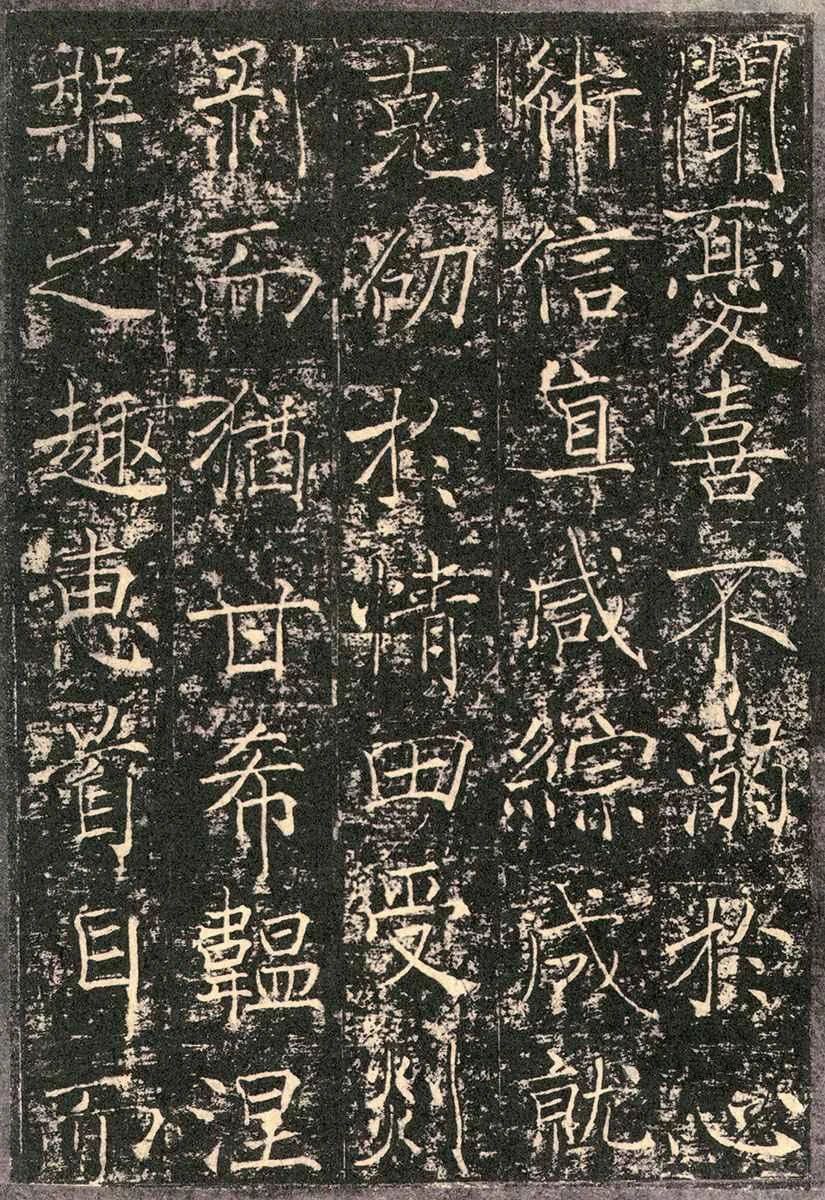 聞憂喜不溺於心
術信直咸綜咸就
克劭於情田受剡
剥而猶甘希韞涅
槃之趣惠目而